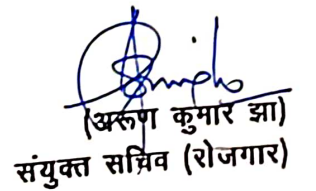 (अरूण कुमार झा)
संयुक्त सचिव (रोजगार)